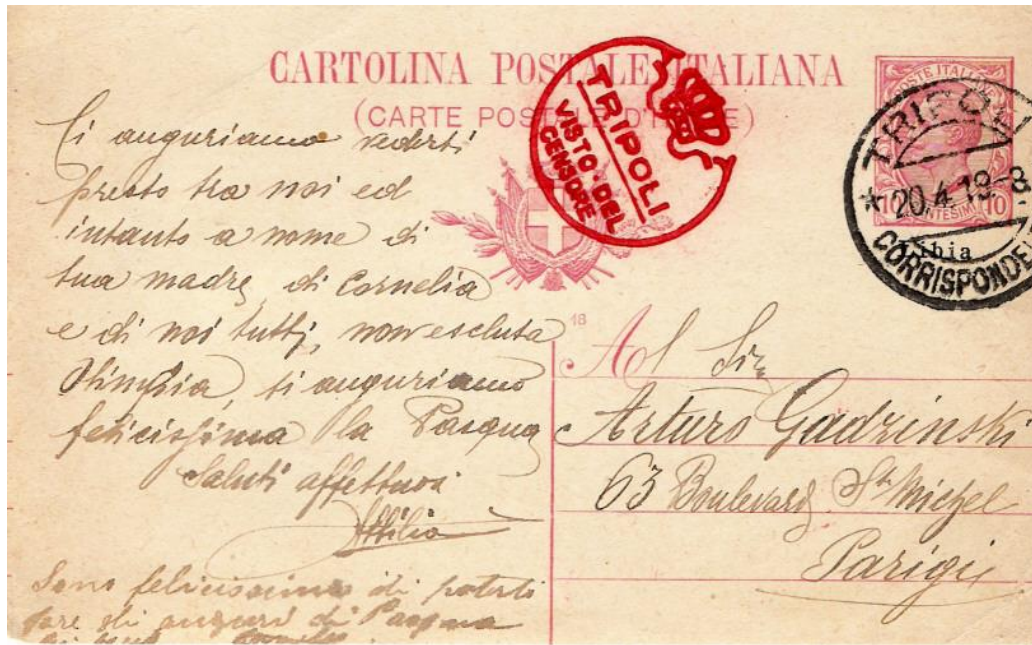 CARTOLINA POSTALE ITALIANA
(CARTE POSTALE D'ITALIE)
TRIPOLI
VISTO · DEL
CENSORE
POSTE ITALIANE
10 CENTESIMI 10
Libia
TRIPOLI
* 20.4.19-8
CORRISPONDEN
Ti auguriamo vederti
presto tra noi ed
intanto a nome di
tua madre, di Cornelia
e di noi tutti, non esclusa
Olimpia, ti auguriamo
felicissima la Pasqua
Saluti affettuosi
Attilio
Sono felicissima di poterti
fare gli auguri di Pasqua
18
Al Sig
Arturo Gadzinski
63 Boulevard St Michel
Parigi